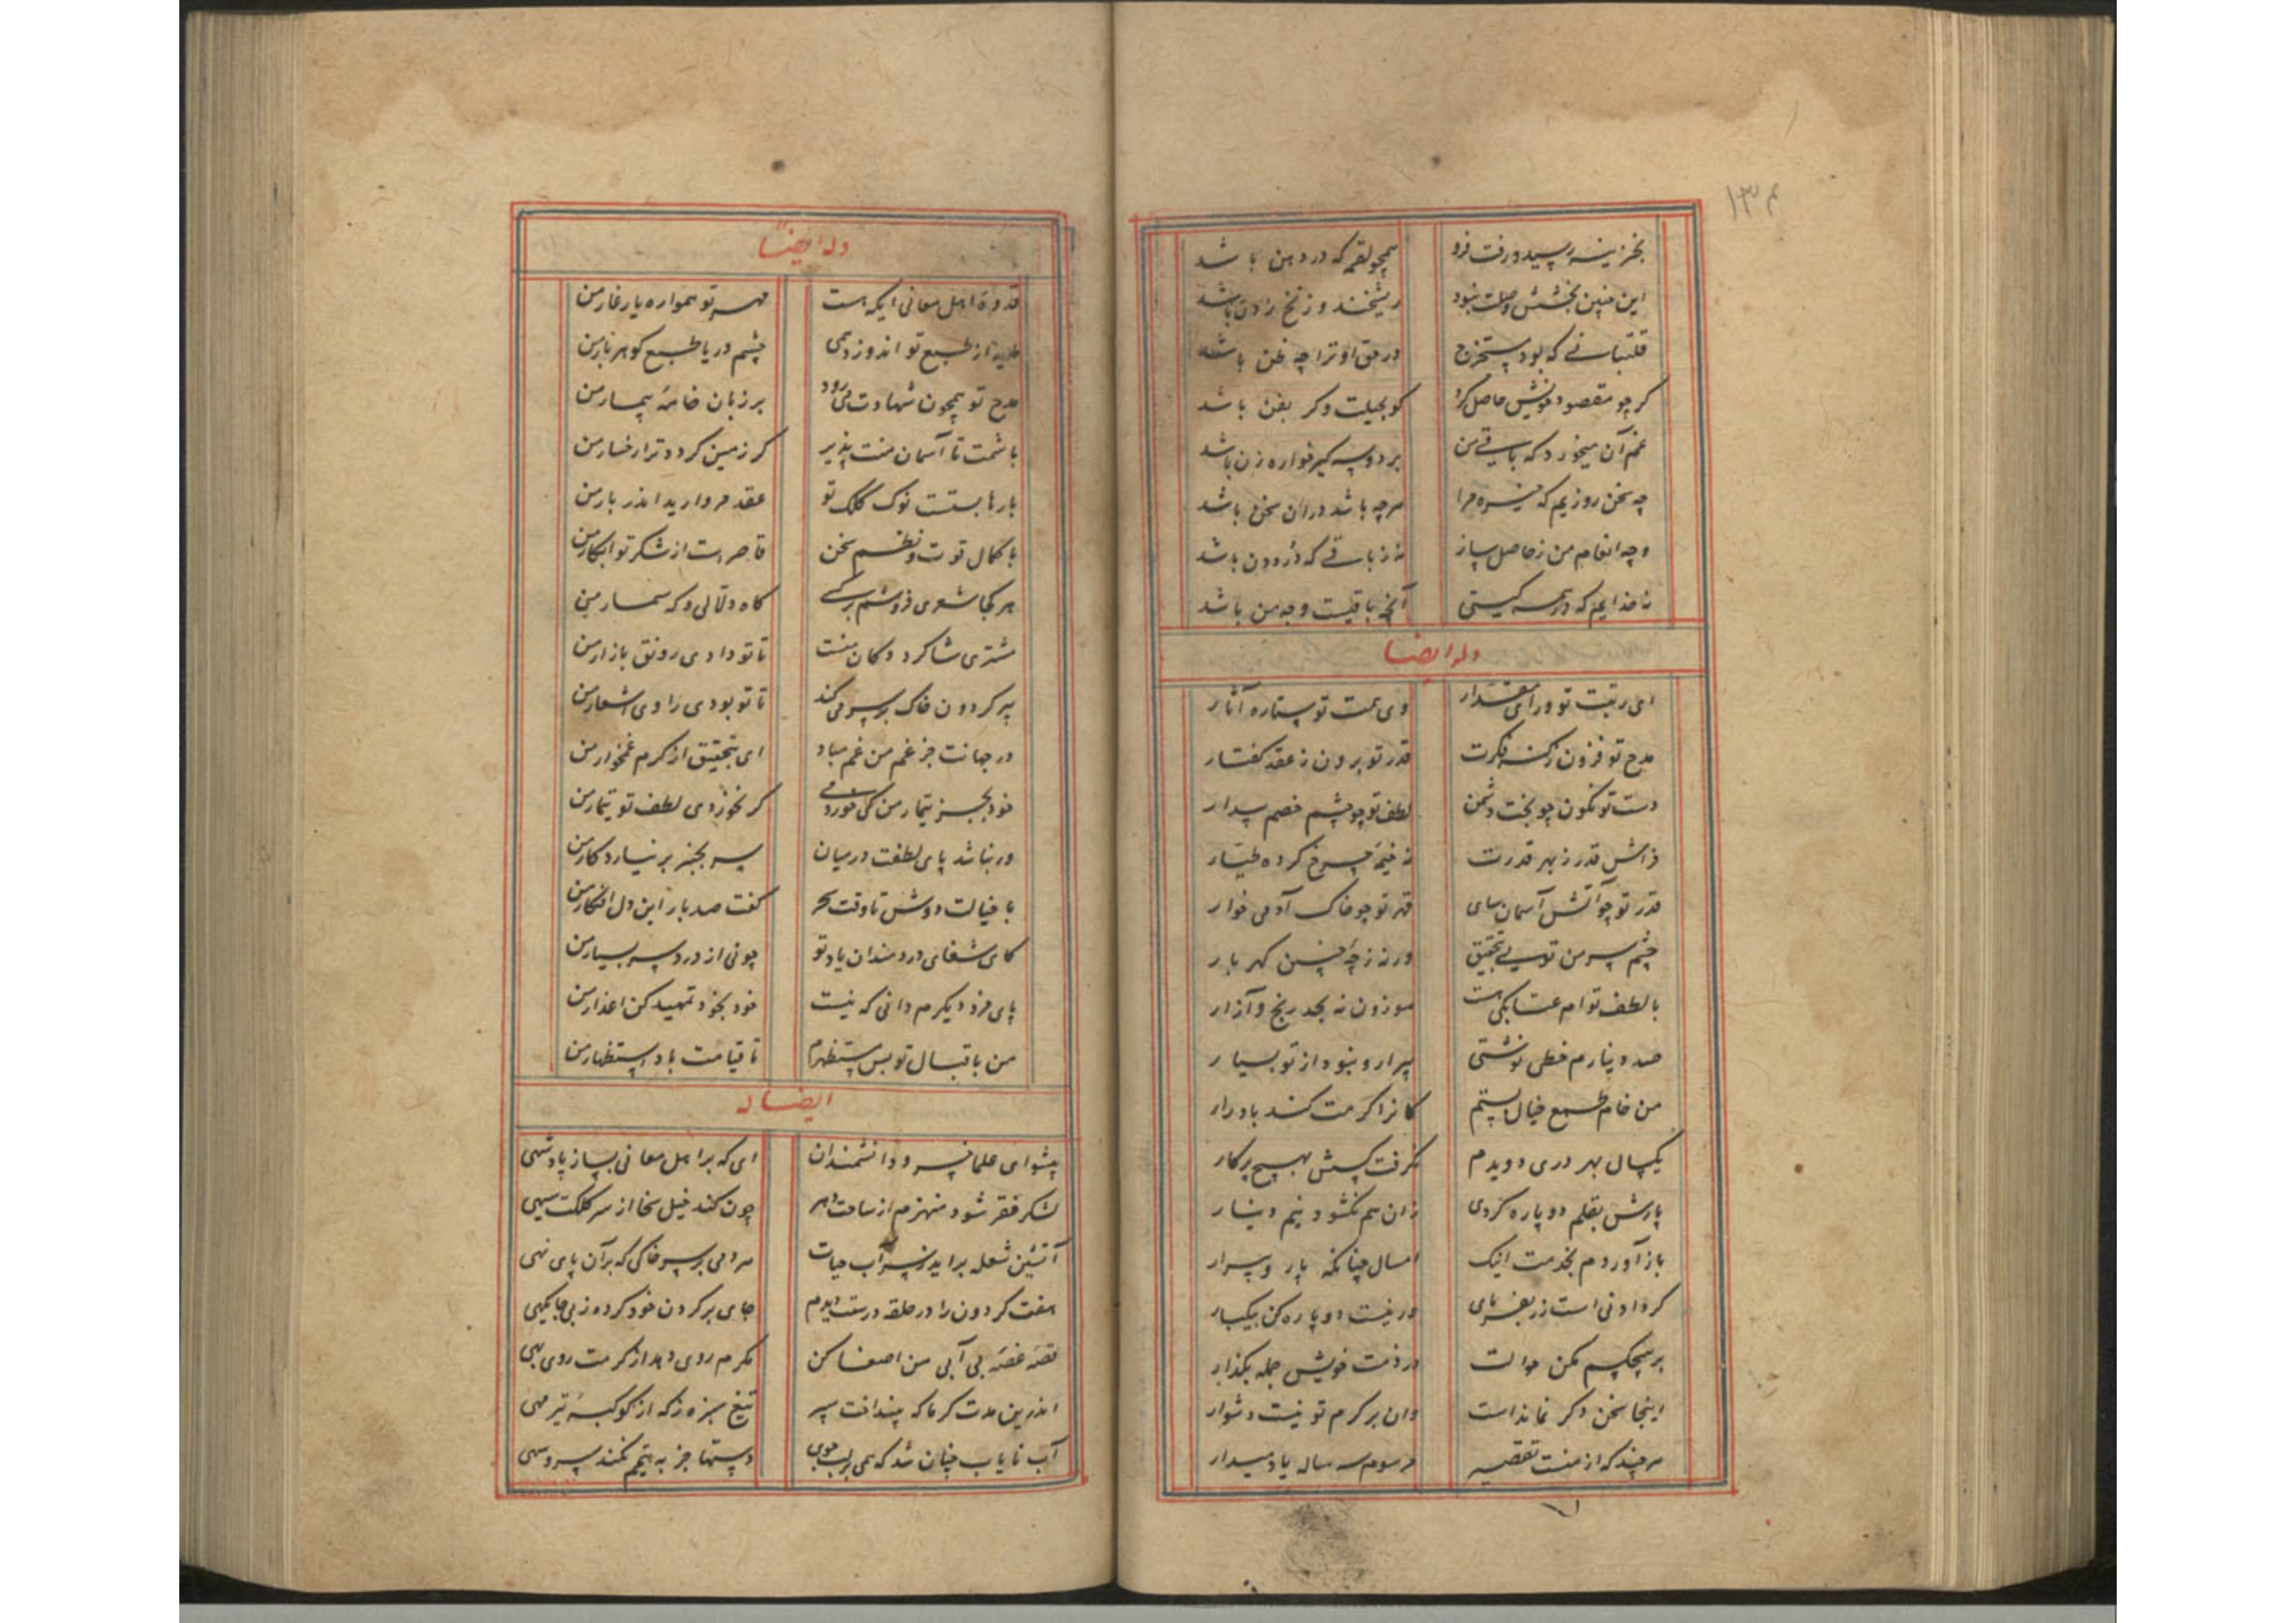 ۱۳۴
بخزینه رسید و رفت فرو همچو لقمه که در دهن باشد
این چنین بخشش وصلت نبود ریشخند و زنخ زدن باشد
قلتبانی که بود مستخرج در حق او ترا چه ظن باشد
کر چو مقصود خویش حاصل کرد کو بحیلت و کر بفن باشد
غم آن میخورد که باقی من
چه سخن روزیم که خیره مرا هرچه باشد دران سخن باشد
وجه انعام من ز حاصل ساز نه ز باقی که دُردِ دن باشد
ناخدایم که در همه کیتی آنچ باقیست وجه من باشد
وله ایضا
ای رتبت تو ورای مقدار وی همت تو ستاره آثار
مدح تو فزون ز کنه فکرت قدر تو برون ز عقد کفتار
دست تو نکون چو بخت دشمن لطف تو چو چشم خصم بیدار
فراش قدر ز بهر قدرت نه خیمه چرخ کرده طیار
قدر تو چو آتش آسمان سای قهر تو چو خاک آدمی خوار
چشم سر من تویی بتحقیق ورنه ز چه شد چنین کهر بار
با لطف توام عتابکی هست موزون نه بحد رنج و آزار
صد دینارم خطی نوشتی پیرار و نبود از تو بسیار
من خام طمع خیال بستم کانرا کرمت کند بادرار
یکسال بهر دری دویدم نکرفت کسش بهیچ پرکار
پارش بقلم دو پاره کردی زان هم نکشود نیم دینار
باز آوردم بخدمت اینک امسال چنانکه پار و پیرار
کر دادنی است زر بفرمای ور نیست دو پاره کن بیکبار
بر هیچکسم مکن حوالت در ذمت خویش جمله بکذار
اینجا سخن دکر نماندست وان بر کرم تو نیست دشوار
هرچند که از منست تقصیر مرسوم سه ساله یاد میدار
وله ایضا
قدوهٔ اهل معانی ایکه هست مهر تو همواره یار غار من
از طبع تو اندوزد همی چشم دریا طبع کوهر بار من
مدح تو همچون شهادت می رود بر زبان خامهٔ بیمار من
باشمت تا آسمان منت پذیر کر زمین کردد ترا رخسار من
بارها بستست نوک کلک تو عقد مروارید اندر بار من
با کمال قوت و نظم سخن قاصر است از شکر تو ابکار من
هر کجا شعری فروشم بر کسی کاه دلالی و که سمسار من
مشتری شاکرد دکان منست تا تو دادی رونق بازار من
پیر کردون خاک بر سر می کند تا تو بودی راوی اشعار من
در جهانت جز غم من غم مباد ای بتحقیق از کرم غمخوار من
خود بجز تیمار من کی خوردمی کر نخوردی لطف تو تیمار من
ور نباشد پای لطفت درمیان سر بچنبر برنیارد کار من
با خیالت دوش تا وقت سحر کفت صد بار این دل افکار من
کای شفای دردمندان یاد تو چونی از درد سر بسیار من
پای مزد دیکرم دانی که نیست خود بخود تمهید کن اعذار من
من باقبال تو بس مستظهرم تا قیامت باد استظهار من
ایضا له
پیشوای علما خسرو دانشمندان ای که بر اهل معانی بسزا پادشهی
لشکر فقر شود منهزم از ساحت دهر چون کند خیل سخا از سر کلکت سپهی
آتشین شعله براید ز سر آب حیات مردمی بر سر خاکی که بر آن پای نهی
هفت کردون را در حلقه درست دیدم جای بر کردن خود کرده ز بی جایکهی
قصه غصه بی آبی من اصغا کن مکرم روی دهد از کرمت روی بهی
اندرین مدت کرما که بینداخت سپر تیغ سبزه ز که از کوکبهٔ تیر مهی
آب نایاب چنان شد که همی بر لب جوی دستها جز به تیمم نکند سرو سهی